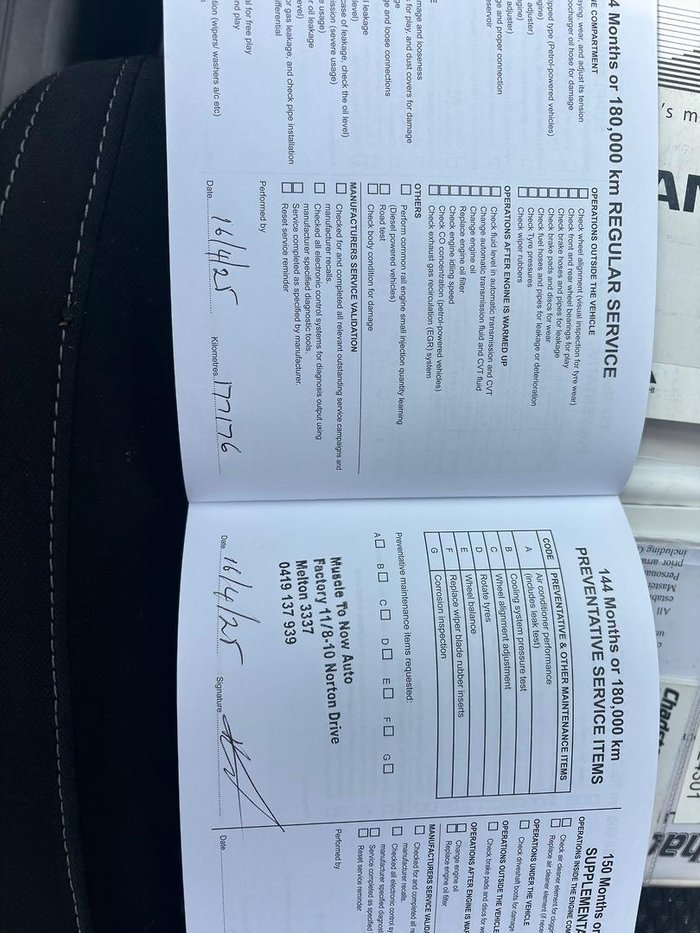 4 Months or 180,000 km REGULAR SERVICE
NE COMPARTMENT
aying, wear, and adjust its tension
bocharger oil hose for damage
ipped type (Petrol-powered vehicles)
ngine)
adjuster)
gine)
adjuster)
ge and proper connection
eservoir
mage and looseness
for play, and dust covers for damage
ge
ge and loose connections
il leakage
level)
case of leakage, check the oil level)
ission (severe usage)
e usage)
r oil leakage
evel)
or gas leakage, and check pipe installation
fferential
al for free play
nd play
tion (wipers/ washers a/c etc)
OPERATIONS OUTSIDE THE VEHICLE
Check wheel alignment (visual inspection for tyre wear)
Check front and rear wheel bearings for play
Check brake hoses and pipes for leakage
Check brake pads and discs for wear
Check fuel hoses and pipes for leakage or deterioration
Check tyre pressures
Check wiper rubbers
OPERATIONS AFTER ENGINE IS WARMED UP
Check fluid level in automatic transmission and CVT
Change automatic transmission fluid and CVT fluid
Change engine oil
Replace engine oil filter
Check engine idling speed
Check CO concentration (petrol-powered vehicles)
Check exhaust gas recirculation (EGR) system
OTHERS
Perform common rail engine small injection quantity learning
(Diesel powered vehicles)
Road test
Check body condition for damage
MANUFACTURERS SERVICE VALIDATION
Checked for and completed all relevant outstanding service campaigns and
manufacturer recalls.
Checked all electronic control systems for diagnosis output using
manufacturer specified diagnostic tools.
Service completed as specified by manufacturer.
Reset service reminder
Performed by
Date 16/4/25 Kilometres 177176
144 Months or 180,000 km
PREVENTATIVE SERVICE ITEMS
CODE PREVENTATIVE & OTHER MAINTENANCE ITEMS
A Air conditioner performance
(includes leak test)
B Cooling system pressure test
C Wheel alignment adjustment
D Rotate tyres
E Wheel balance
F Replace wiper blade rubber inserts
G Corrosion inspection
Preventative maintenance items requested:
A B C D E F G
Muscle To Now Auto
Factory 11/8-10 Norton Drive
Melton 3337
0419 137 939
Date 16/4/25 Signature
150 Months or
SUPPLEMENTA
OPERATIONS INSIDE THE ENGINE COM
Check air cleaner element for clogg
Replace air cleaner element (if nece
OPERATIONS UNDER THE VEHICLE
Check driveshaft boots for damage
OPERATIONS OUTSIDE THE VEHICLE
Check brake pads and discs for we
OPERATIONS AFTER ENGINE IS WA
Change engine oil
Replace engine oil filter
MANUFACTURERS SERVICE VALID
Checked for and completed all re
manufacturer recalls.
Checked all electronic control sy
manufacturer specified diagnostic
Service completed as specified
Reset service reminder
Performed by
Date
's m
AN
including
prior arra
Personal
Master
establi
All